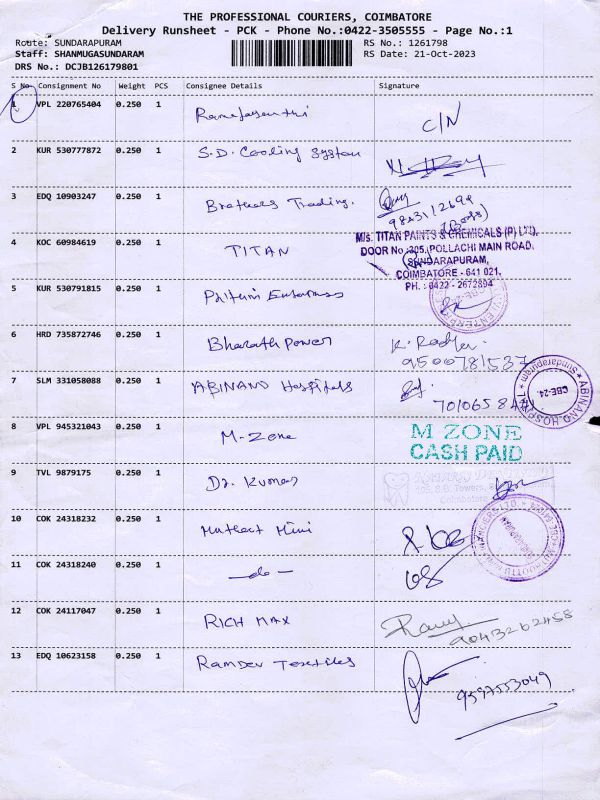 THE PROFESSIONAL COURIERS, COIMBATORE
Delivery Runsheet - PCK - Phone No.:0422-3505555 - Page No.:1
Route: SUNDARAPURAM RS No.: 1261798
Staff: SHANMUGASUNDARAM RS Date: 21-Oct-2023
DRS No.: DCJB126179801
S No Consignment No Weight PCS Consignee Details Signature
1 VPL 220765404 0.250 1 C/N
2 KUR 530777872 0.250 1 S.D. Cooling System
3 EDQ 10903247 0.250 1 Brothers Trading.
9843112699
(Boss)
4 KOC 60984619 0.250 1 TITAN
M/s. TITAN PAINTS & CHEMICALS (P) LTD.
DOOR No :305, POLLACHI MAIN ROAD,
SUNDARAPURAM,
COIMBATORE - 641 021.
PH. : 0422 - 2672894
5 KUR 530791815 0.250 1
6 HRD 735872746 0.250 1 Bharath Power K. Radha
9500781537
7 SLM 331058088 0.250 1 ABINAND Hospitals
ABINAND HOSPITAL
Sundarapuram
CBE-24.
8 VPL 945321043 0.250 1 M-Zone M ZONE
CASH PAID
9 TVL 9879175 0.250 1 Dr. Kumar
Coimbatore
10 COK 24318232 0.250 1 Muthoot Mini
11 COK 24318240 0.250 1 —do—
12 COK 24117047 0.250 1 RICH MAX
9043262458
13 EDQ 10623158 0.250 1 Ramdev Textiles
9597553049